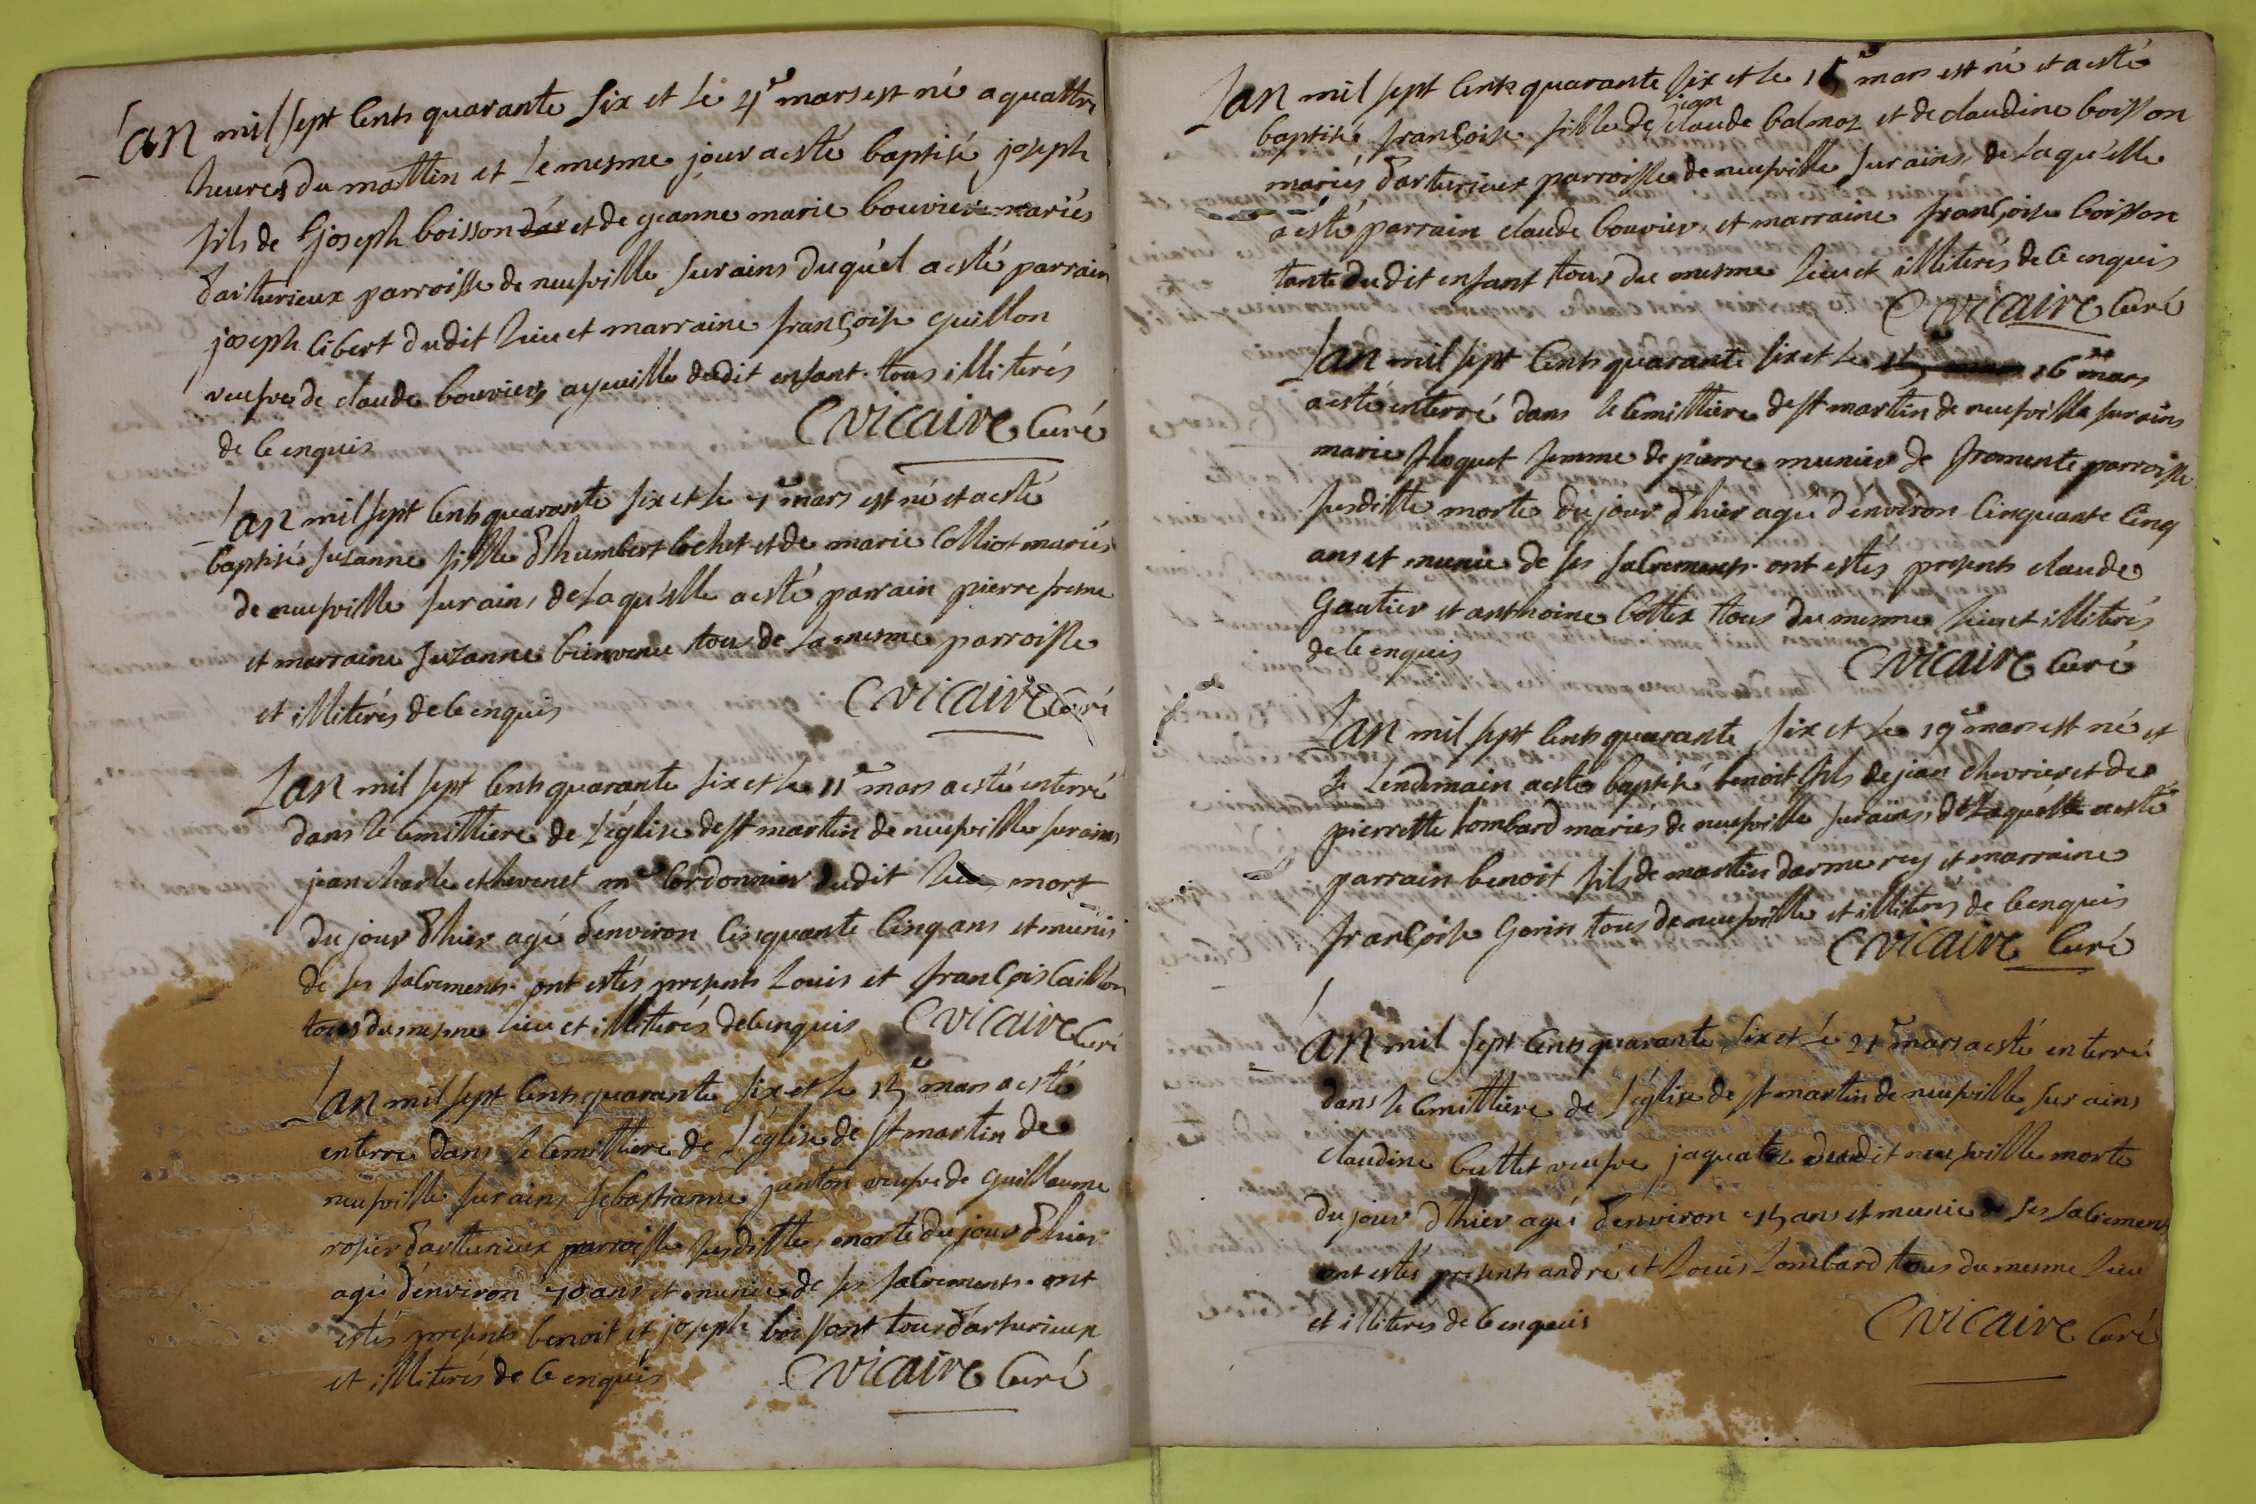 Lan mil sept cents quarante six et le 4e mars est né a quattre
heures du mattin et le mesme jour a esté baptisé joseph
fils de joseph boisson et de jeanne marie bouvier mariés
d'arturieux parroisse de neufville sur ains duquel a esté parrain
joseph libert dudit lieu et marraine françoise guillon
veufve de claude bouvier ayeuille dudit enfant tous illiterés
de ce enquis
C vicaire curé
Lan mil sept cents quarante six et le 7e mars est né et a esté
baptisé suzanne fille d'humbert cochet et de marie colliot mariés
de neufville sur ains, de laquelle a esté parrain pierre fresne
et marraine suzanne bienvenu tous de la mesme parroisse
et illiterés de ce enquis
C vicaire curé
Lan mil sept cents quarante six et le 11e mars a esté enterré
dans le cemittiere de l'église de st martin de neufville sur ains
jean charle ethevenet me cordonnier dudit lieu mort
du jour d'hier agé d'environ cinquante cinq ans et munis
de ses sacrements. ont estés presents Louis et françois caillon
tous du mesme lieu et illiterés de ce enquis
C vicaire curé
Lan mil sept cents quarante six et le 15e mars a esté
enterré dans le cemittiere de l'église de st martin de
neufville sur ains sebastianne janton veufve de guillaume
rosier d'arturieux parroisse susditte, morte du jour d'hier
agé d'environ 70 ans et munie de ses sacrements. ont
estés presents benoit et joseph boisson tous d'arturieux
et illiterés de ce enquis
C vicaire curé
Lan mil sept cents quarante six et le 15e mars est né et a esté
jean
baptisé françoise fille de claude balmoz et de claudine boisson
mariés d'arturieux parroisse de neufville sur ains, de laquelle
a esté parrain claude bouvier, et marraine françoise boisson
tante dudit enfant tous du mesme lieu et illiterés de ce enquis
C vicaire curé
Lan mil sept cents quarante six et le 16e mars
a esté enterré dans le cemittiere de st martin de neufville sur ains
marie floquet femme de pierre munier de fromente parroisse
susditte morte du jour d'hier agé d'environ cinquante cinq
ans et munie de ses sacrements. ont estés presents claude
gautier et anthoine cottex tous du mesme lieu et illiterés
de ce enquis
C vicaire curé
Lan mil sept cents quarante six et le 19e mars est né et
le lendemain a esté baptisé benoit fils de jean chevrier et de
pierrette lombard mariés de neufville sur ains, de laquelle a esté
parrain benoit fils de martin darmerey et marraine
françoise gorin tous de neufville et illiterés de ce enquis
C vicaire curé
Lan mil sept cents quarante six et le 21e mars a esté enterré
dans le cemittiere de l'église de st martin de neufville sur ains
claudine buttet veufve jaquatoz dudit neufville morte
du jour d'hier agé d'environ 75 ans et munie de ses sacrements
ont estés presents andré et Louis Lombard tous du mesme lieu
et illiterés de ce enquis
C vicaire curé